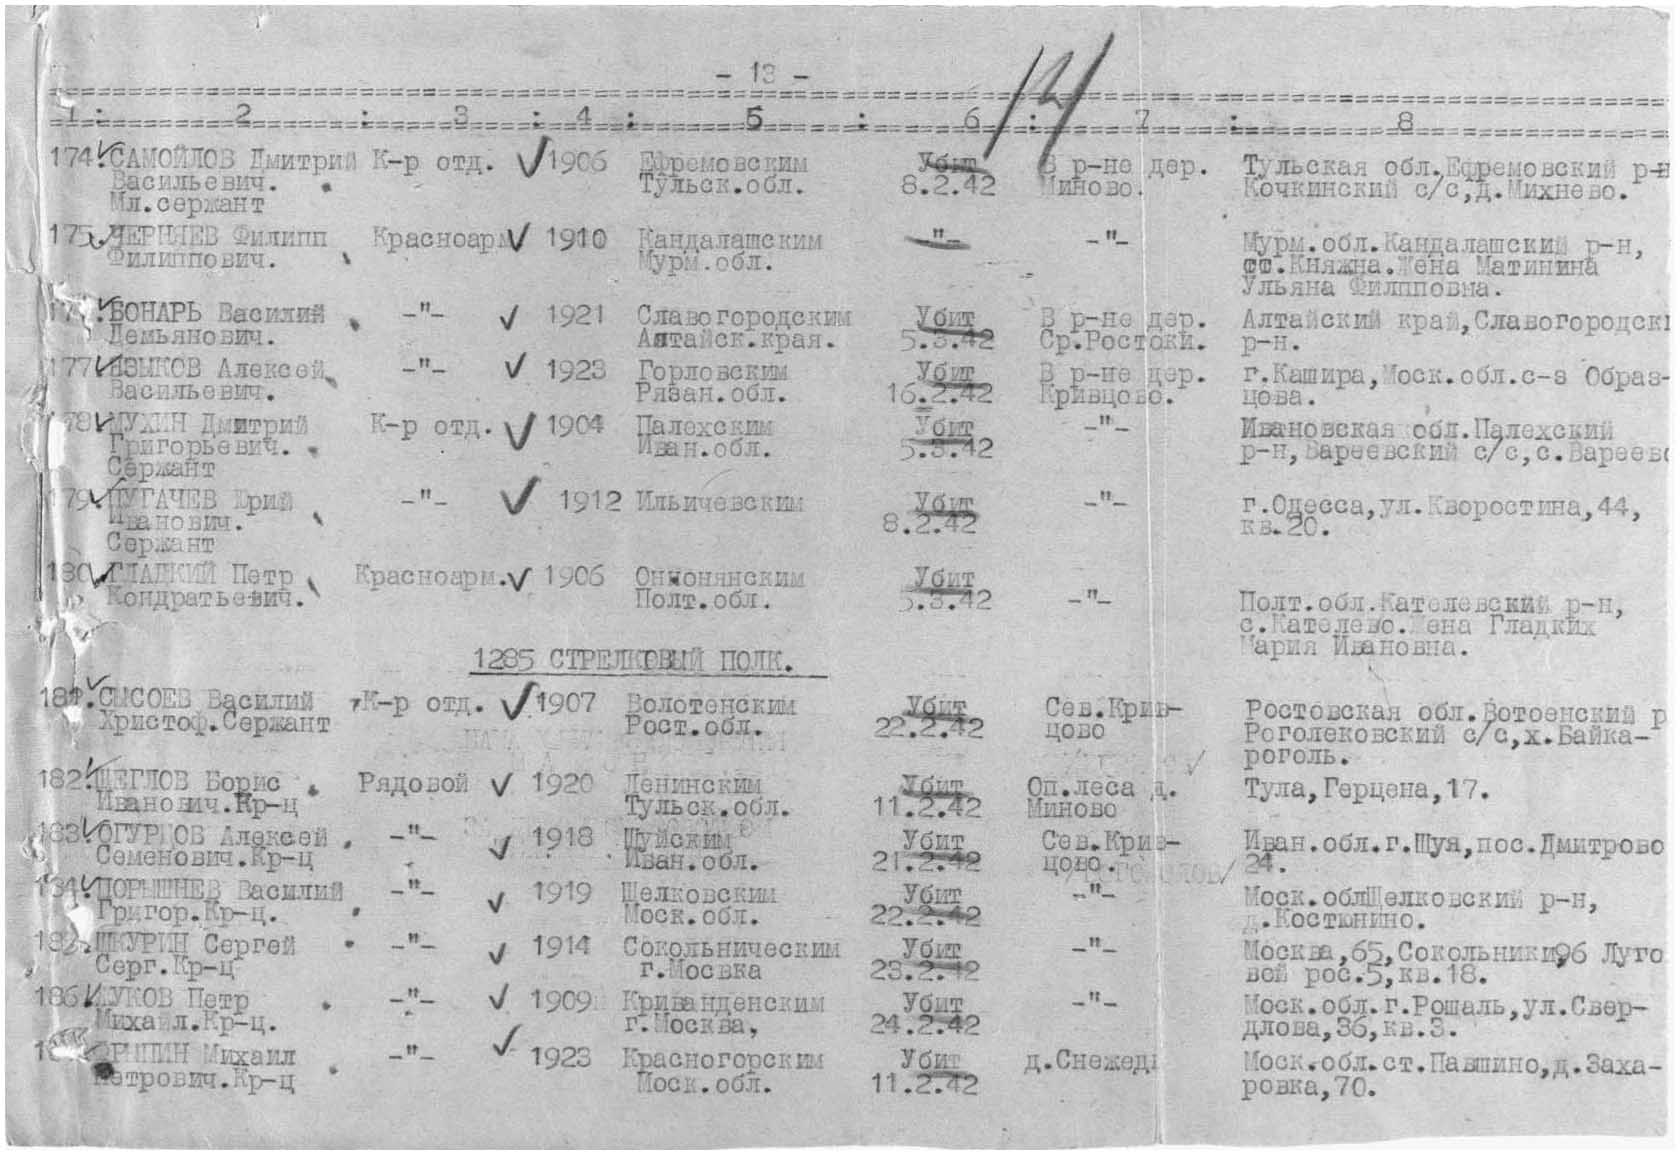 - 13 -
14
1 : 2 : 3 : 4 : 5 : 6 : 7 : 8
174. САМОЙЛОВ Дмитрий К-р отд. 1906 Ефремовским Убит В р-не дер. Тульская обл.,Ефремовский р-н
Васильевич. Тульск.обл. 8.2.42 Миново. Кочкинский с/с,д.Михнево.
Мл.сержант
175. ЧЕРНЯЕВ Филипп Красноарм 1910 Кандалашским -"- -"- Мурм.обл.Кандалашский р-н,
Филиппович. Мурм.обл. ст.Княжна.Жена Матинина
Ульяна Филпповна.
БОНАРЬ Василий -"- 1921 Славогородским Убит В р-не дер. Алтайский край,Славогородск
Демьянович. Алтайск.края. 5.3.42 Ср.Ростоки. р-н.
177. ЯЗЫКОВ Алексей -"- 1923 Горловским Убит В р-не дер. г.Кашира,Моск.обл.с-з Образ-
Васильевич. Рязан.обл. 16.2.42 Кривцово. цова.
178. МУХИН Дмитрий К-р отд. 1904 Палехским Убит -"- Ивановская обл.Палехский
Григорьевич. Иван.обл. 5.3.42 р-н,Вареевский с/с,с.Вареево
Сержант
179. ПУГАЧЕВ Юрий -"- 1912 Ильичевским Убит -"- г.Одесса,ул.Кворостина,44,
Иванович. 8.2.42 кв.20.
Сержант
180. ГЛАДКИЙ Петр Красноарм. 1906 Онионянским Убит
Кондратьевич. Полт.обл. 5.3.42 -"- Полт.обл.Кателевский р-н,
с.Кателево.Жена Гладких
Мария Ивановна.
1285 СТРЕЛКОВЫЙ ПОЛК.
181. СЫСОЕВ Василий К-р отд. 1907 Волотенским Убит Сев.Крив- Ростовская обл.Вотоенский р
Христоф.Сержант Рост.обл. 22.2.42 цово Роголековский с/с,х.Байка-
роголь.
182. ЩЕГЛОВ Борис Рядовой 1920 Ленинским Убит Оп.леса д. Тула,Герцена,17.
Иванович.Кр-ц Тульск.обл. 11.2.42 Миново
183. ОГУРЦОВ Алексей -"- 1918 Шуйским Убит Сев.Крив- Иван.обл.г.Шуя,пос.Дмитрово
Семенович.Кр-ц Иван.обл. 21.2.42 цово. 24.
184. ПОРЫШНЕВ Василий -"- 1919 Щелковским Убит -"- Моск.облЩелковский р-н,
Григор.Кр-ц. Моск.обл. 22.2.42 д.Костюнино.
185. ШКУРИН Сергей -"- 1914 Сокольническим Убит -"- Москва,65,Сокольники,96 Луго
Серг.Кр-ц г.Мосвка 23.2.42 вой рос.5,кв.18.
186. -"- 1909 Криванденским Убит -"- Моск.обл.г.Рошаль,ул.Свер-
Михайл.Кр-ц. г.Москва, 24.2.42 длова,36,кв.3.
Михаил -"- 1923 Красногорским Убит д.Снежедь Моск.обл.ст.Павшино,д.Заха-
Петрович.Кр-ц Моск.обл. 11.2.42 ровка,70.